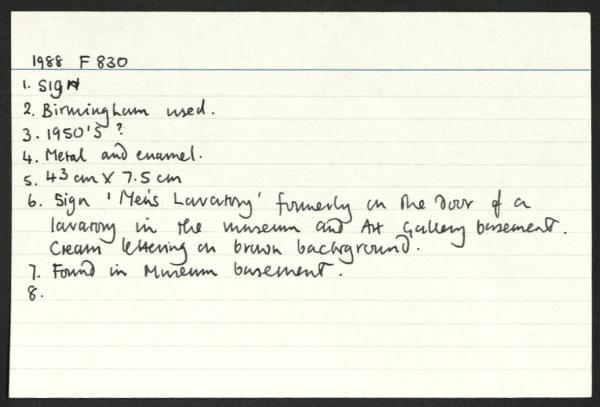 1988 F 830
1. Sign
2. Birmingham used.
3. 1950's ?
4. Metal and enamel.
5. 43 cm X 7.5 cm
6. Sign 'Men's Lavatory' formerly on the door of a
lavatory in the museum and Art Gallery basement.
Cream lettering on brown background.
7. Found in Museum basement.
8.